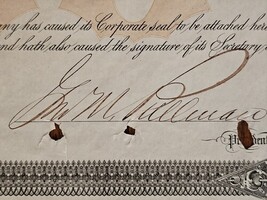 ny has caused its Corporate seal to be attached here
nd hath also caused the signature of its Secretary
Geo M Pullman